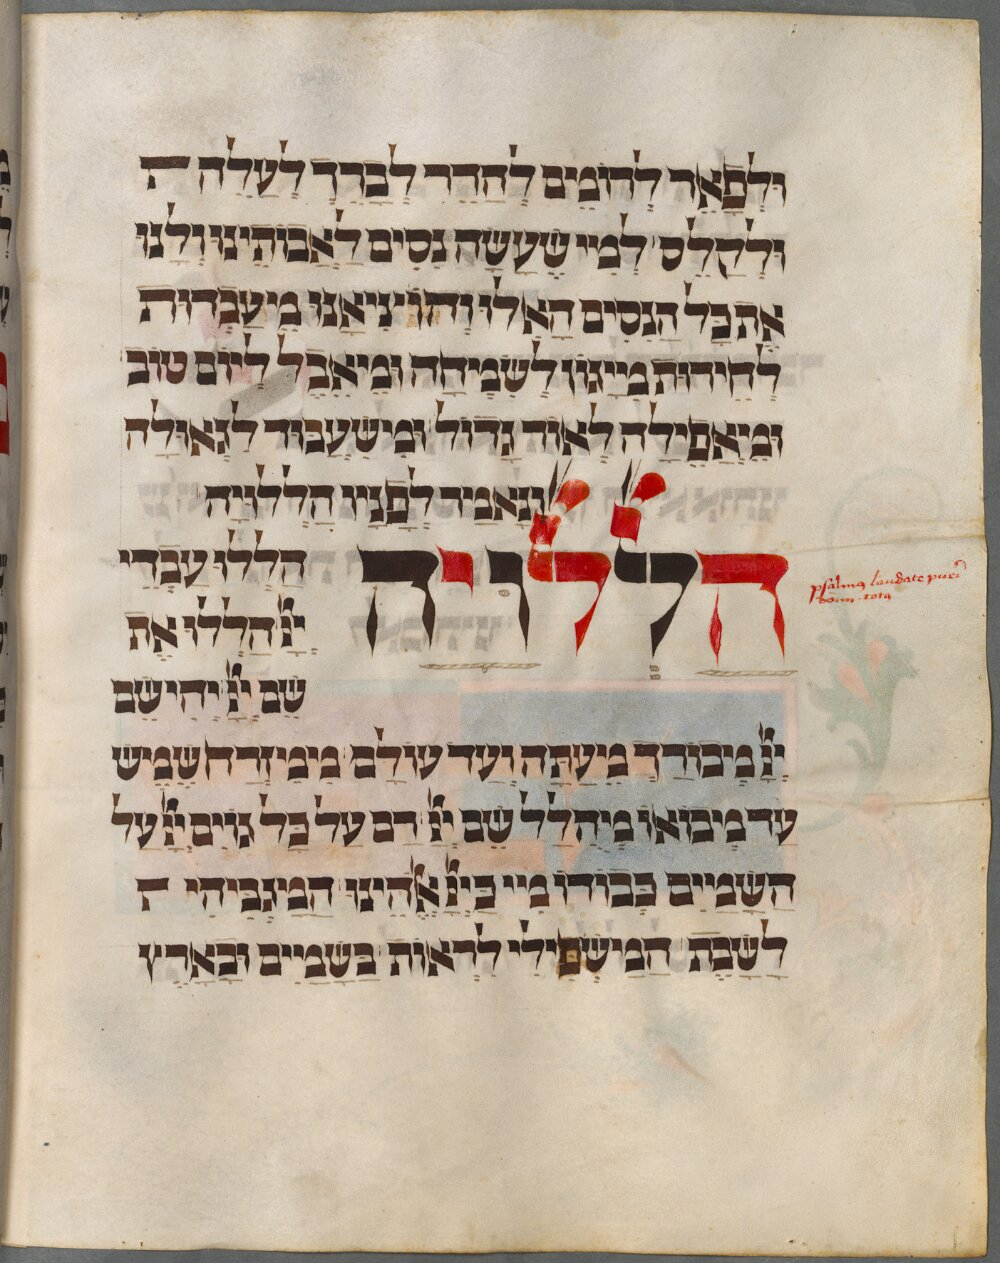 וּלְפָאֵר לְרוֹמֵם לְהַדֵר לְבָרֵךְ לְעַלֵה ת
וּלְקַלֵס לְמִי שֶׁעָשָׂה נִסִים לַאֲבוֹתֵינוּ וְלָנוּ
אֶת כָּל הַנִסִים הָאֵלוּ וְהוֹצִיאָנוּ מֵעַבְדוּת
לְחֵירוּת מִיָגוֹן לְשִׂמְחָה וּמֵיאֵבֶל לְיוֹם טוֹב
וּמֵיאֲפֵילָה לְאוֹר גָדוֹל וּמִישִׁעְבּוּד לִגְאוּלָה
וְנֹאמַר לְפָנָיו הַלְלוּיָהּ
הללויה
הַלְלוּ עַבְדֵי
יְיָ הַלְלוּ אֶת
שֵׁם יְיָ יְהִי שֵׁם
יְיָ מְבוֹרָךְ מֵיעַתָּה וְעַד עוֹלָם מִמִּזְרַח שֶׁמֶשׁ
עַד מְבוֹאוֹ מְהֻלָל שֵׁם יְיָ רָם עַל כָּל גוֹיִם יְיָ עַל
הַשָּׁמַיִם כְּבוֹדוֹ מִי כַּיְיָ אֱלֹהֵינוּ הַמַּגְבִּיהִי ת
לָשָׁבֶת הַמַּשְׁפִּילִי לִרְאוֹת בַּשָּׁמַיִם וּבָאָרֶץ
psalmꝯ laudate pueri